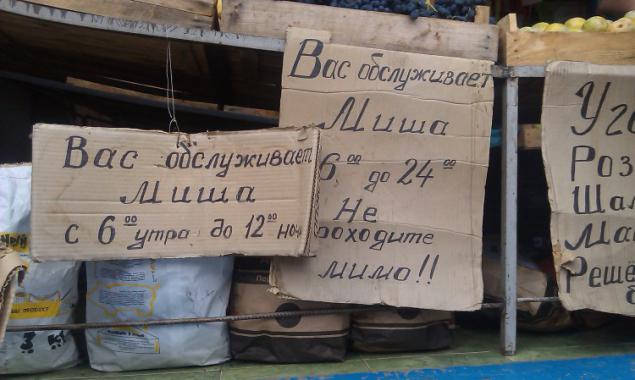 Вас обслуживает
Миша
с 6⁰⁰ утра до 12⁰⁰ ночи
Вас обслуживает
Миша
6⁰⁰ до 24⁰⁰
Не
роходите
мимо!!
Уго
Роз
Шал
Ма
Реше